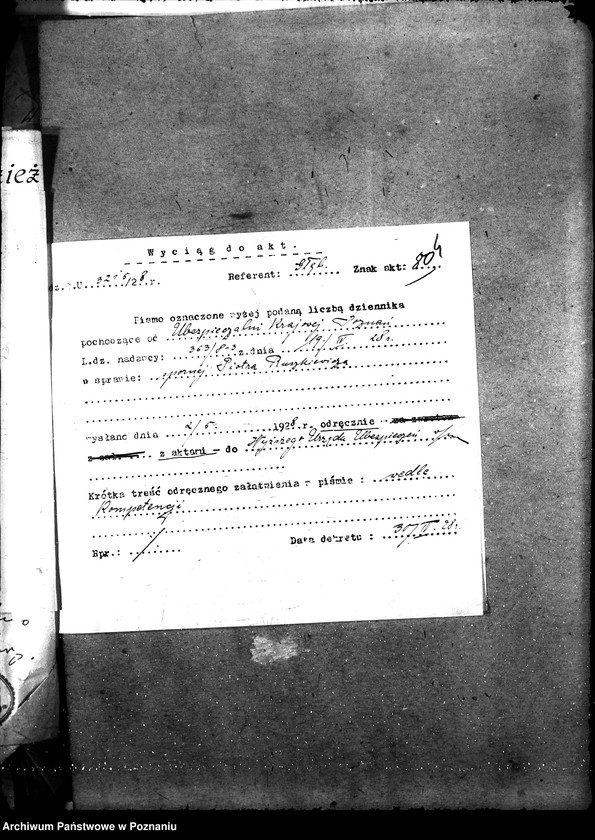 Wyciąg do akt.
dz.P.U. 3295/28 r. Referent: Znak akt: 204
Pismo oznaczone wyżej podaną liczbą dziennika
pochodzące od Ubezpieczalni Krajowej Poznań
L.dz. nadawcy: 363/8-3 z dnia 19/IV. 28r.
w sprawie: spornej Piotra Ruszkiewicza
wysłano dnia 2/5 1928 r. odręcznie za zwrotem
z aktami - do Wyższego Urzędu Ubezpieczeń
Krótka treść odręcznego załatwienia w piśmie : wedle
Kompetencji
Rpr.: Data dekretu : 30/IV. 28r.
zież
Archiwum Państwowe w Poznaniu